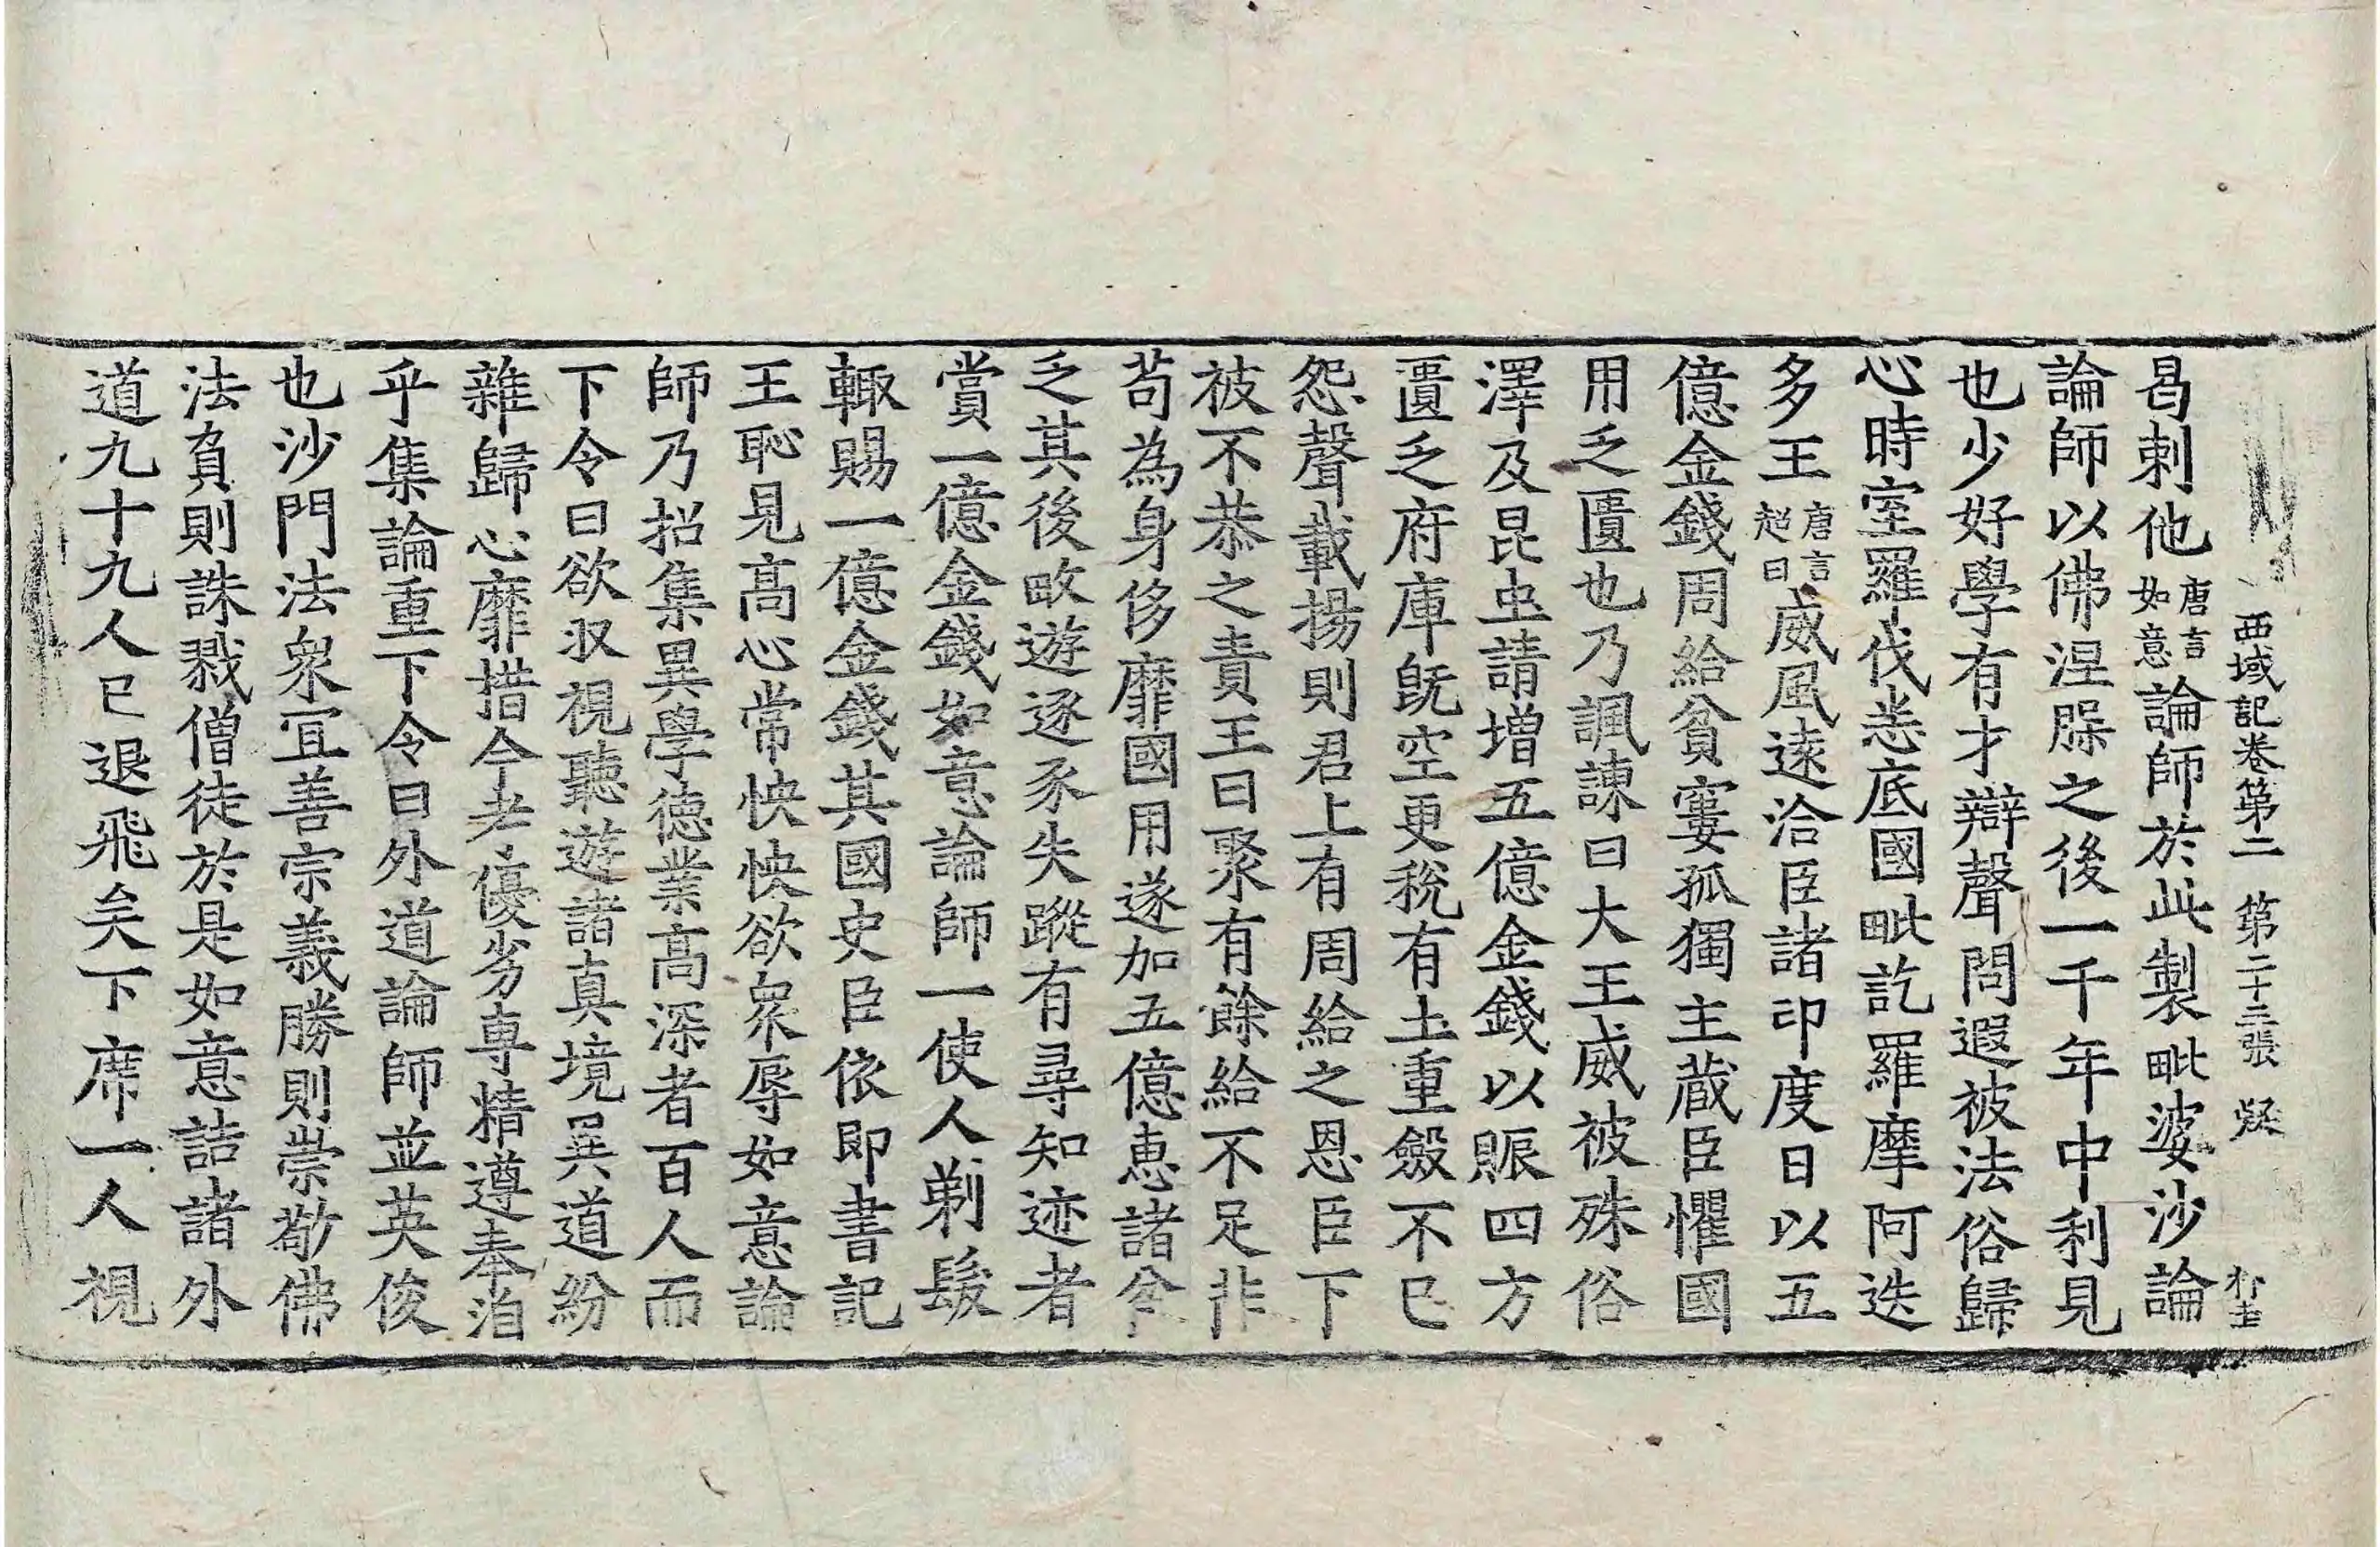 西域記卷第二 第二十三張 疑
曷剌他唐言如意論師於此製毗婆沙論
論師以佛涅槃之後一千年中利見
也少好學有才辯聲問遐被法俗歸
心時室羅伐悉底國毗訖羅摩阿迭
多王唐言超日威風遠洽臣諸印度日以五
億金錢周給貧窶孤獨主藏臣懼國
用乏匱也乃諷諫曰大王威被殊俗
澤及昆虫請增五億金錢以賑四方
匱乏府庫旣空更稅有土重斂不已
怨聲載揚則君上有周給之恩臣下
被不恭之責王曰聚有餘給不足非
苟為身侈靡國用遂加五億惠諸貧
乏其後畋遊逐豕失蹤有尋知迹者
賞一億金錢如意論師一使人剃髮
輙賜一億金錢其國史臣依即書記
王恥見高心常怏怏欲衆辱如意論
師乃招集異學德業高深者百人而
下令曰欲収視聽遊諸真境異道紛
雜歸心靡措今考優劣專精遵奉洎
乎集論重下令曰外道論師並英俊
也沙門法衆宜善宗義勝則崇敬佛
法負則誅戮僧徒於是如意詰諸外
道九十九人已退飛矣下席一人視